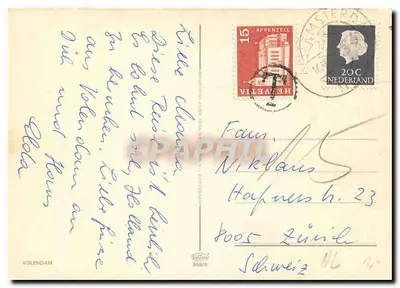 Liebe Mama
Diese Reise ist herrlich.
Es lohnt sich, Holland
zu besuchen. Liebe Grüsse
aus Volendam an
Dich und Hans
VOLENDAM
15
APPENZELL
HELVETIA
T
AMSTERDAM
20C
NEDERLAND
15
Fam.
Niklaus
Hafnerstr. 23
8005 Zürich
Schweiz
NL
PHILAPHIL